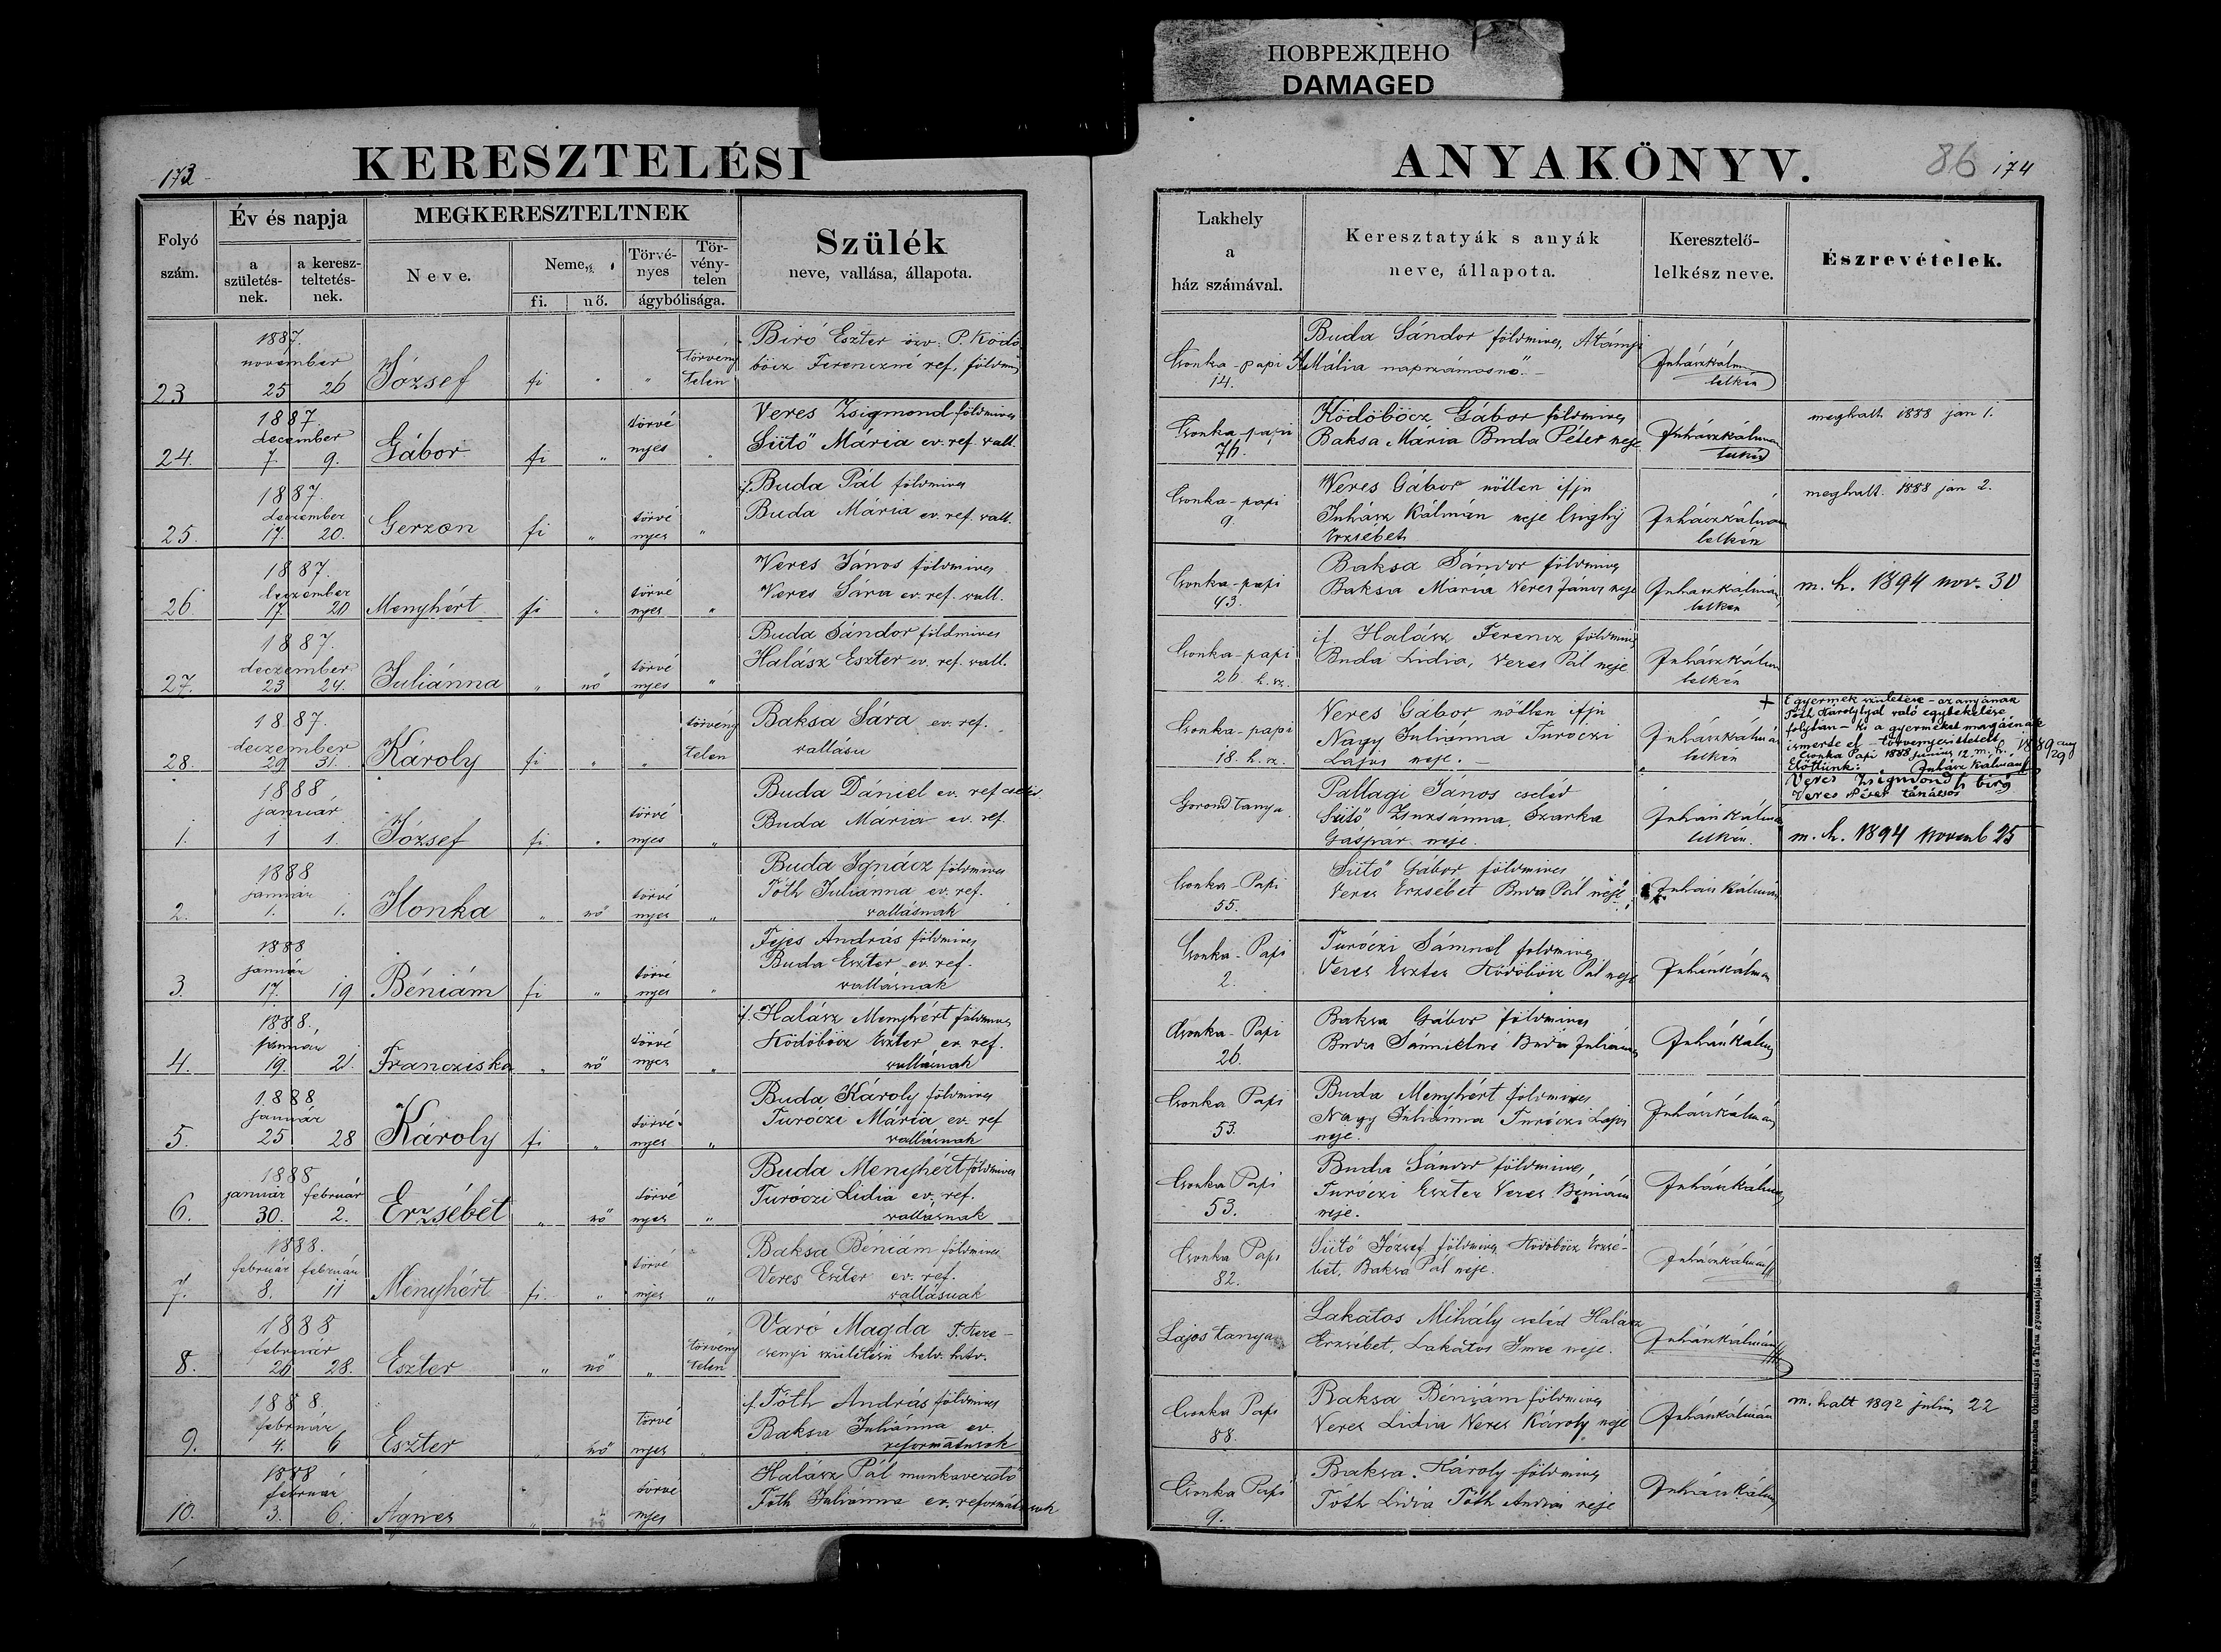 ПОВРЕЖДЕНО
DAMAGED
173
KERESZTELÉSI
ANYAKÖNYV.
86
174
Folyó
szám.
Év és napja
a
születés-
nek.
a keresz-
teltetés-
nek.
MEGKERESZTELTNEK
Neve.
Neme,
fi.
nő.
Törvé-
nyes
Tör-
vény-
telen
ágybólisága.
Szülék
neve, vallása, állapota.
Lakhely
a
ház számával.
Keresztatyák s anyák
neve, állapota.
Keresztelő-
lelkész neve.
Észrevételek.
1887.
november
23 25 26 József fi " " törvény
telen
Biró Eszter özv. P. Ködö
böcz Ferenczné ref. földmives
Csonka-papi
14.
Buda Sándor földmives, Atányi
Mália napszámosnő. –
Juhász Kálmán
lelkész
1887.
december
24. 7. 9. Gábor fi " törvé
nyes "
Veres Zsigmond földmives
Sütő Mária ev. ref. vall.
Csonka-papi
76.
Ködöböcz Gábor földmives
Baksa Mária Buda Péter neje
Juhász Kálmán
lelkész
meghalt 1888 jan 1.
1887.
deczember
25. 17. 20. Gerzon fi " törvé
nyes "
if. Buda Pál földmives
Buda Mária ev. ref. vall.
Csonka-papi
9.
Veres Gábor nőtlen ifju
Juhász Kálmán neje
Erzsébet
Juhász Kálmán
lelkész
meghalt. 1888 jan 2.
1887.
deczember
26. 17 20 Menyhért fi " törvé
nyes "
Veres János földmives
Veres Sára ev. ref. vall.
Csonka-papi
43.
Baksa Sándor földmives
Baksa Mária Veres János neje
Juhász Kálmán
lelkész
m. h. 1894 nov. 30
1887.
deczember
27. 23 24. Juliánna " nő törvé
nyes "
Buda Sándor földmives
Halász Eszter ev. ref. vall.
Csonka-papi
26 h. sz.
if. Halász Ferencz földmives
Buda Lidia, Veres Pál neje
Juhász Kálmán
lelkész
1887.
deczember
28. 29 31. Károly fi " " törvény
telen
Baksa Sára ev. ref.
vallásu
Csonka-papi
18. h. sz.
Veres Gábor nőtlen ifju
Nagy Juliánna Turóczi
Lajos neje. –
Juhász Kálmán
lelkész
+ E gyermek születése – az anyának
Tóth Károlylyal való egybekelése
folytán – ki a gyermeket magáénak
ismerte el – törvényesittetett.
Csonka Papi 1888 junius 12. m. h. 1889 aug
29
Előttünk: Juhász Kálmán
Veres Zsigmond h biró
Veres Péter tanácsos
1888
január
1. 1 1. József fi " törvé
nyes "
Buda Dániel ev. ref cseléd
Buda Mária ev. ref.
Gorond tanya
Pallagi János cseléd
Sütő Zsuzsánna, Szarka
Gáspár neje.
Juhász Kálmán
lelkész.
m. h. 1894 novemb 25
1888
január
2. 1. 1. Ilonka " nő törvé
nyes "
Buda Ignácz földmives
Tóth Juliánna ev. ref.
vallásnak
Csonka-Papi
55.
Sütő Gábor földmives
Veres Erzsébet Buda Pál neje
Juhász Kálmán
1888
január
3. 17. 19 Béniám fi " törvé
nyes "
Fejes András földmives
Buda Eszter ev. ref.
vallásnak
Csonka-Papi
2.
Turóczi Sámuel földmives
Veres Eszter Ködöböcz Pál neje
Juhász Kálmán
1888.
január
4. 19. 21. Francziska " nő törvé
nyes "
if. Halász Menyhért földmives
Ködöböcz Eszter ev. ref.
vallásnak
Csonka-Papi
26.
Baksa Gábor földmives
Buda Sámuelné Buda Juliánna
Juhász Kálmán
1888
január
5. 25 28 Károly fi " törvé-
nyes "
Buda Károly földmives
Turóczi Mária ev. ref
vallásnak
Csonka Papi
53.
Buda Menyhért földmives
Nagy Juliánna Turóczi Lajos
neje.
Juhász Kálmán
1888
január február
6. 30. 2. Erzsébet " nő törvé
nyes "
Buda Menyhért földmives
Turóczi Lidia ev. ref.
vallásnak
Csonka Papi
53.
Buda Sándor földmives
Turóczi Eszter Veres Béniám
neje.
Juhász Kálmán
1888.
február február
7. 8. 11 Menyhért fi " törvé
nyes "
Baksa Béniám földmives
Veres Eszter ev. ref.
vallásnak
Csonka Papi
82.
Sütő József földmives Ködöböcz Erzsé-
bet, Baksa Pál neje.
Juhász Kálmán
1888
február
8. 26 28. Eszter " nő " törvény
telen
Varó Magda T. Kere-
csenyi születésü helv. hitv.
Lajos tanya
Lakatos Mihály cseléd Halász
Erzsébet, Lakatos Imre neje.
Juhász Kálmán
1888.
február
9. 4. 6 Eszter " nő törvé
nyes "
if. Tóth András földmives
Baksa Juliánna ev.
reformátusok
Csonka Papi
88.
Baksa Béniám földmives
Veres Lidia Veres Károly neje
Juhász Kálmán
m. halt 1892 julius 22
1888
február
10. 3. 6. Ágnes " nő törvé
nyes
Halász Pál munkavezető
Tóth Juliánna ev. reformátusok
Csonka Papi
9.
Baksa Károly földmives
Tóth Lidia Tóth András neje
Juhász Kálmán